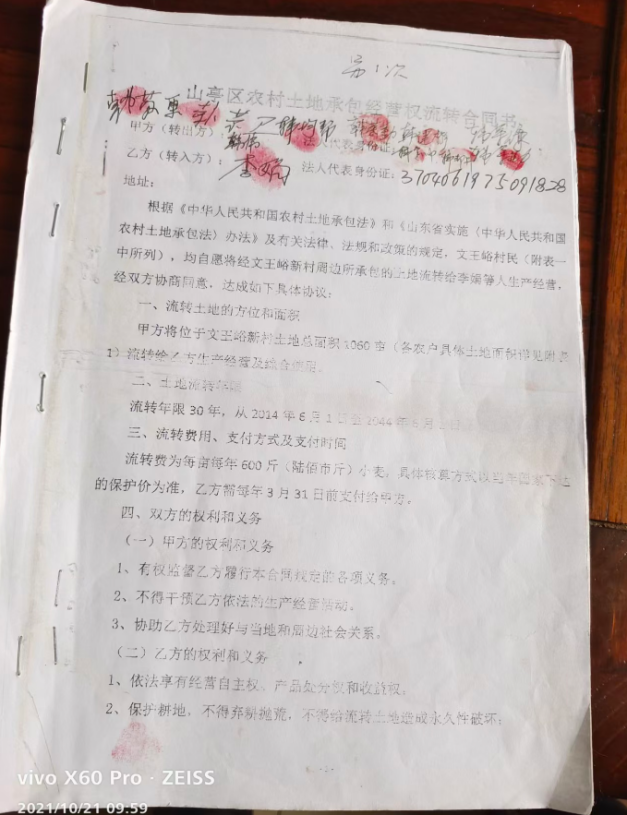 山亭区农村土地承包经营权流转合同书
甲方（转出方）：
法人代表身份证：
乙方（转入方）：李娟 法人代表身份证：3704061975091828
地址：
根据《中华人民共和国农村土地承包法》和《山东省实施〈中华人民共和国
农村土地承包法〉办法》及有关法律、法规和政策的规定，文王峪村民（附表一
中所列），均自愿将经文王峪新村周边所承包的土地流转给李娟等人生产经营，
经双方协商同意，达成如下具体协议：
一、流转土地的方位和面积
甲方将位于文王峪新村土地总面积1060亩（各农户具体土地面积详见附表
1）流转给乙方生产经营及综合
二、土地流转年限
流转年限30年，从2014年6月1日至2044年6月
三、流转费用、支付方式及支付时间
流转费为每亩每年600斤（陆佰市斤）小麦，具体核算方式以当年国家下达
的保护价为准，乙方需每年3月31日前支付给甲方。
四、双方的权利和义务
（一）甲方的权利和义务
1、有权监督乙方履行本合同规定的各项义务。
2、不得干预乙方依法的生产经营活动。
3、协助乙方处理好与当地和周边社会关系。
（二）乙方的权利和义务
1、依法享有经营自主权、产品处分权和收益权。
2、保护耕地，不得弃耕抛荒，不得给流转土地造成永久性破坏；
vivo X60 Pro · ZEISS
2021/10/21 09:59